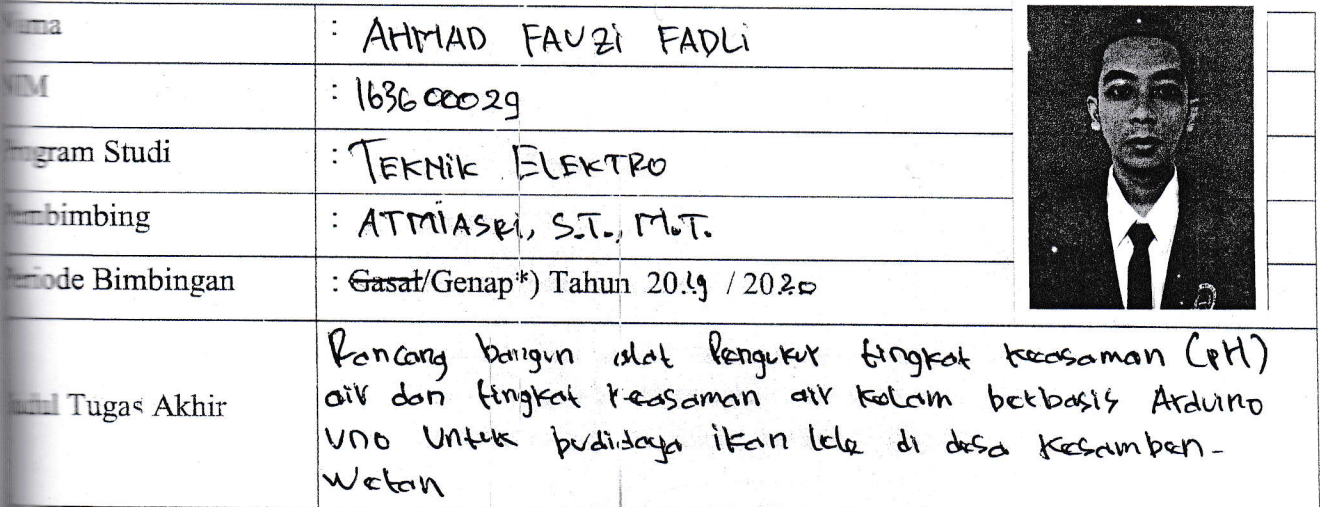 Nama : AHMAD FAUZi FADLi
NIM : 163600029
Program Studi : TEKNiK ELEKTRO
Pembimbing : ATMiASRi, S.T., M.T.
Periode Bimbingan : Gasal/Genap*) Tahun 2019 / 2020
Rancang bangun alat Pengukur tingkat keasaman (pH)
air dan tingkat keasaman air kolam berbasis Arduino
Judul Tugas Akhir
Uno Untuk budidaya ikan lele di desa Kesamben-
Wetan